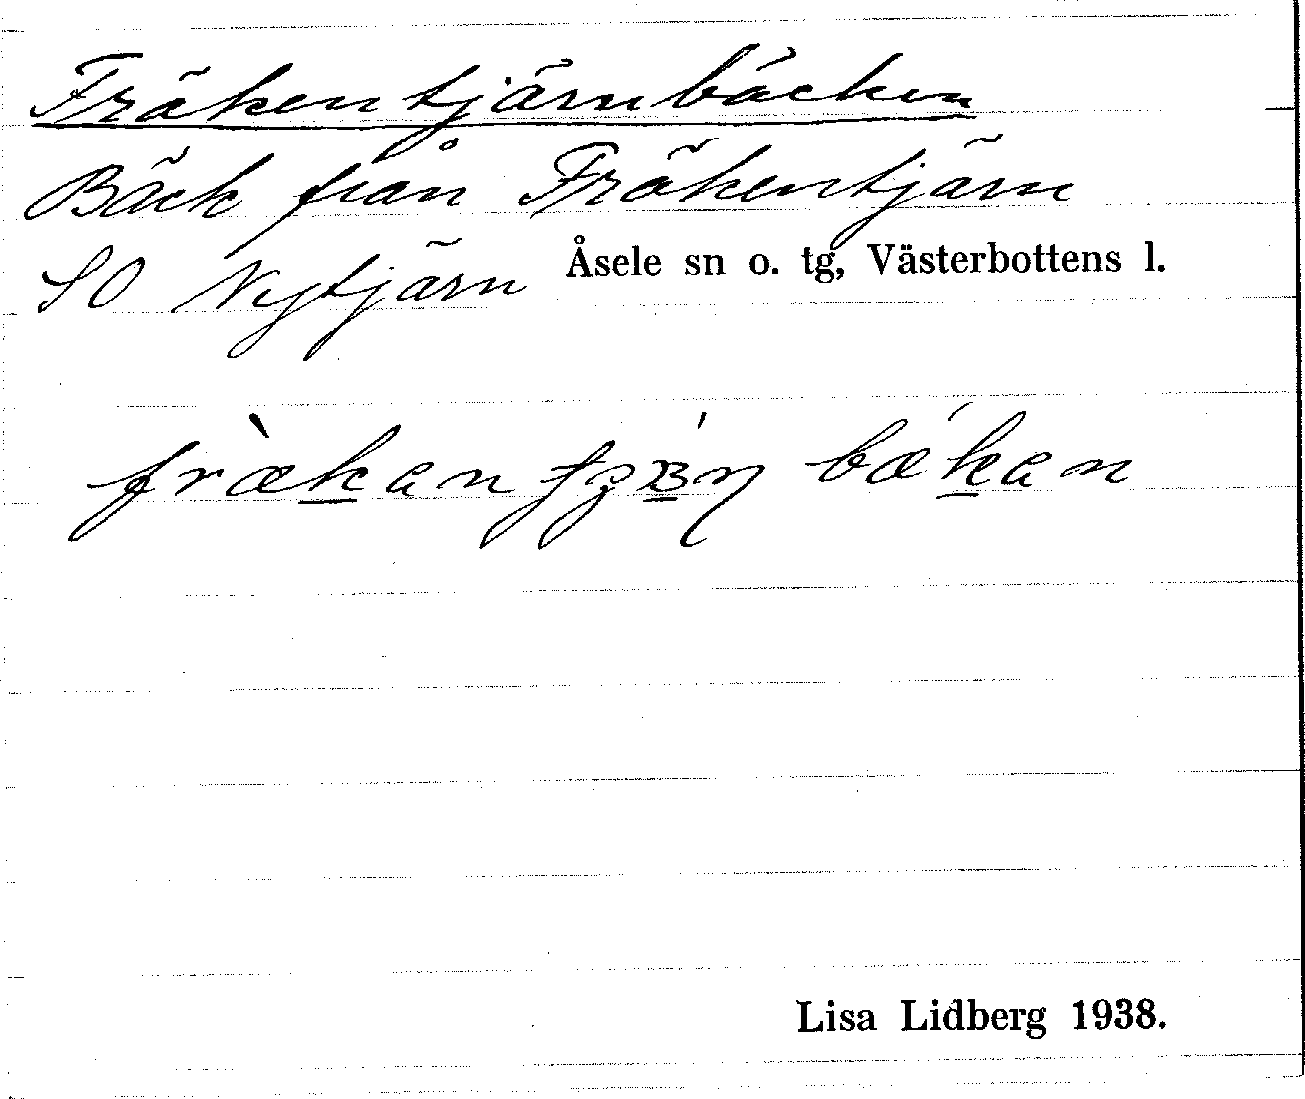 Fräkentjärnbäcken
Bäck från Fräkentjärn
SO Nytjärn Åsele sn o. tg, Västerbottens l.
bækan
Lisa Lidberg 1938.